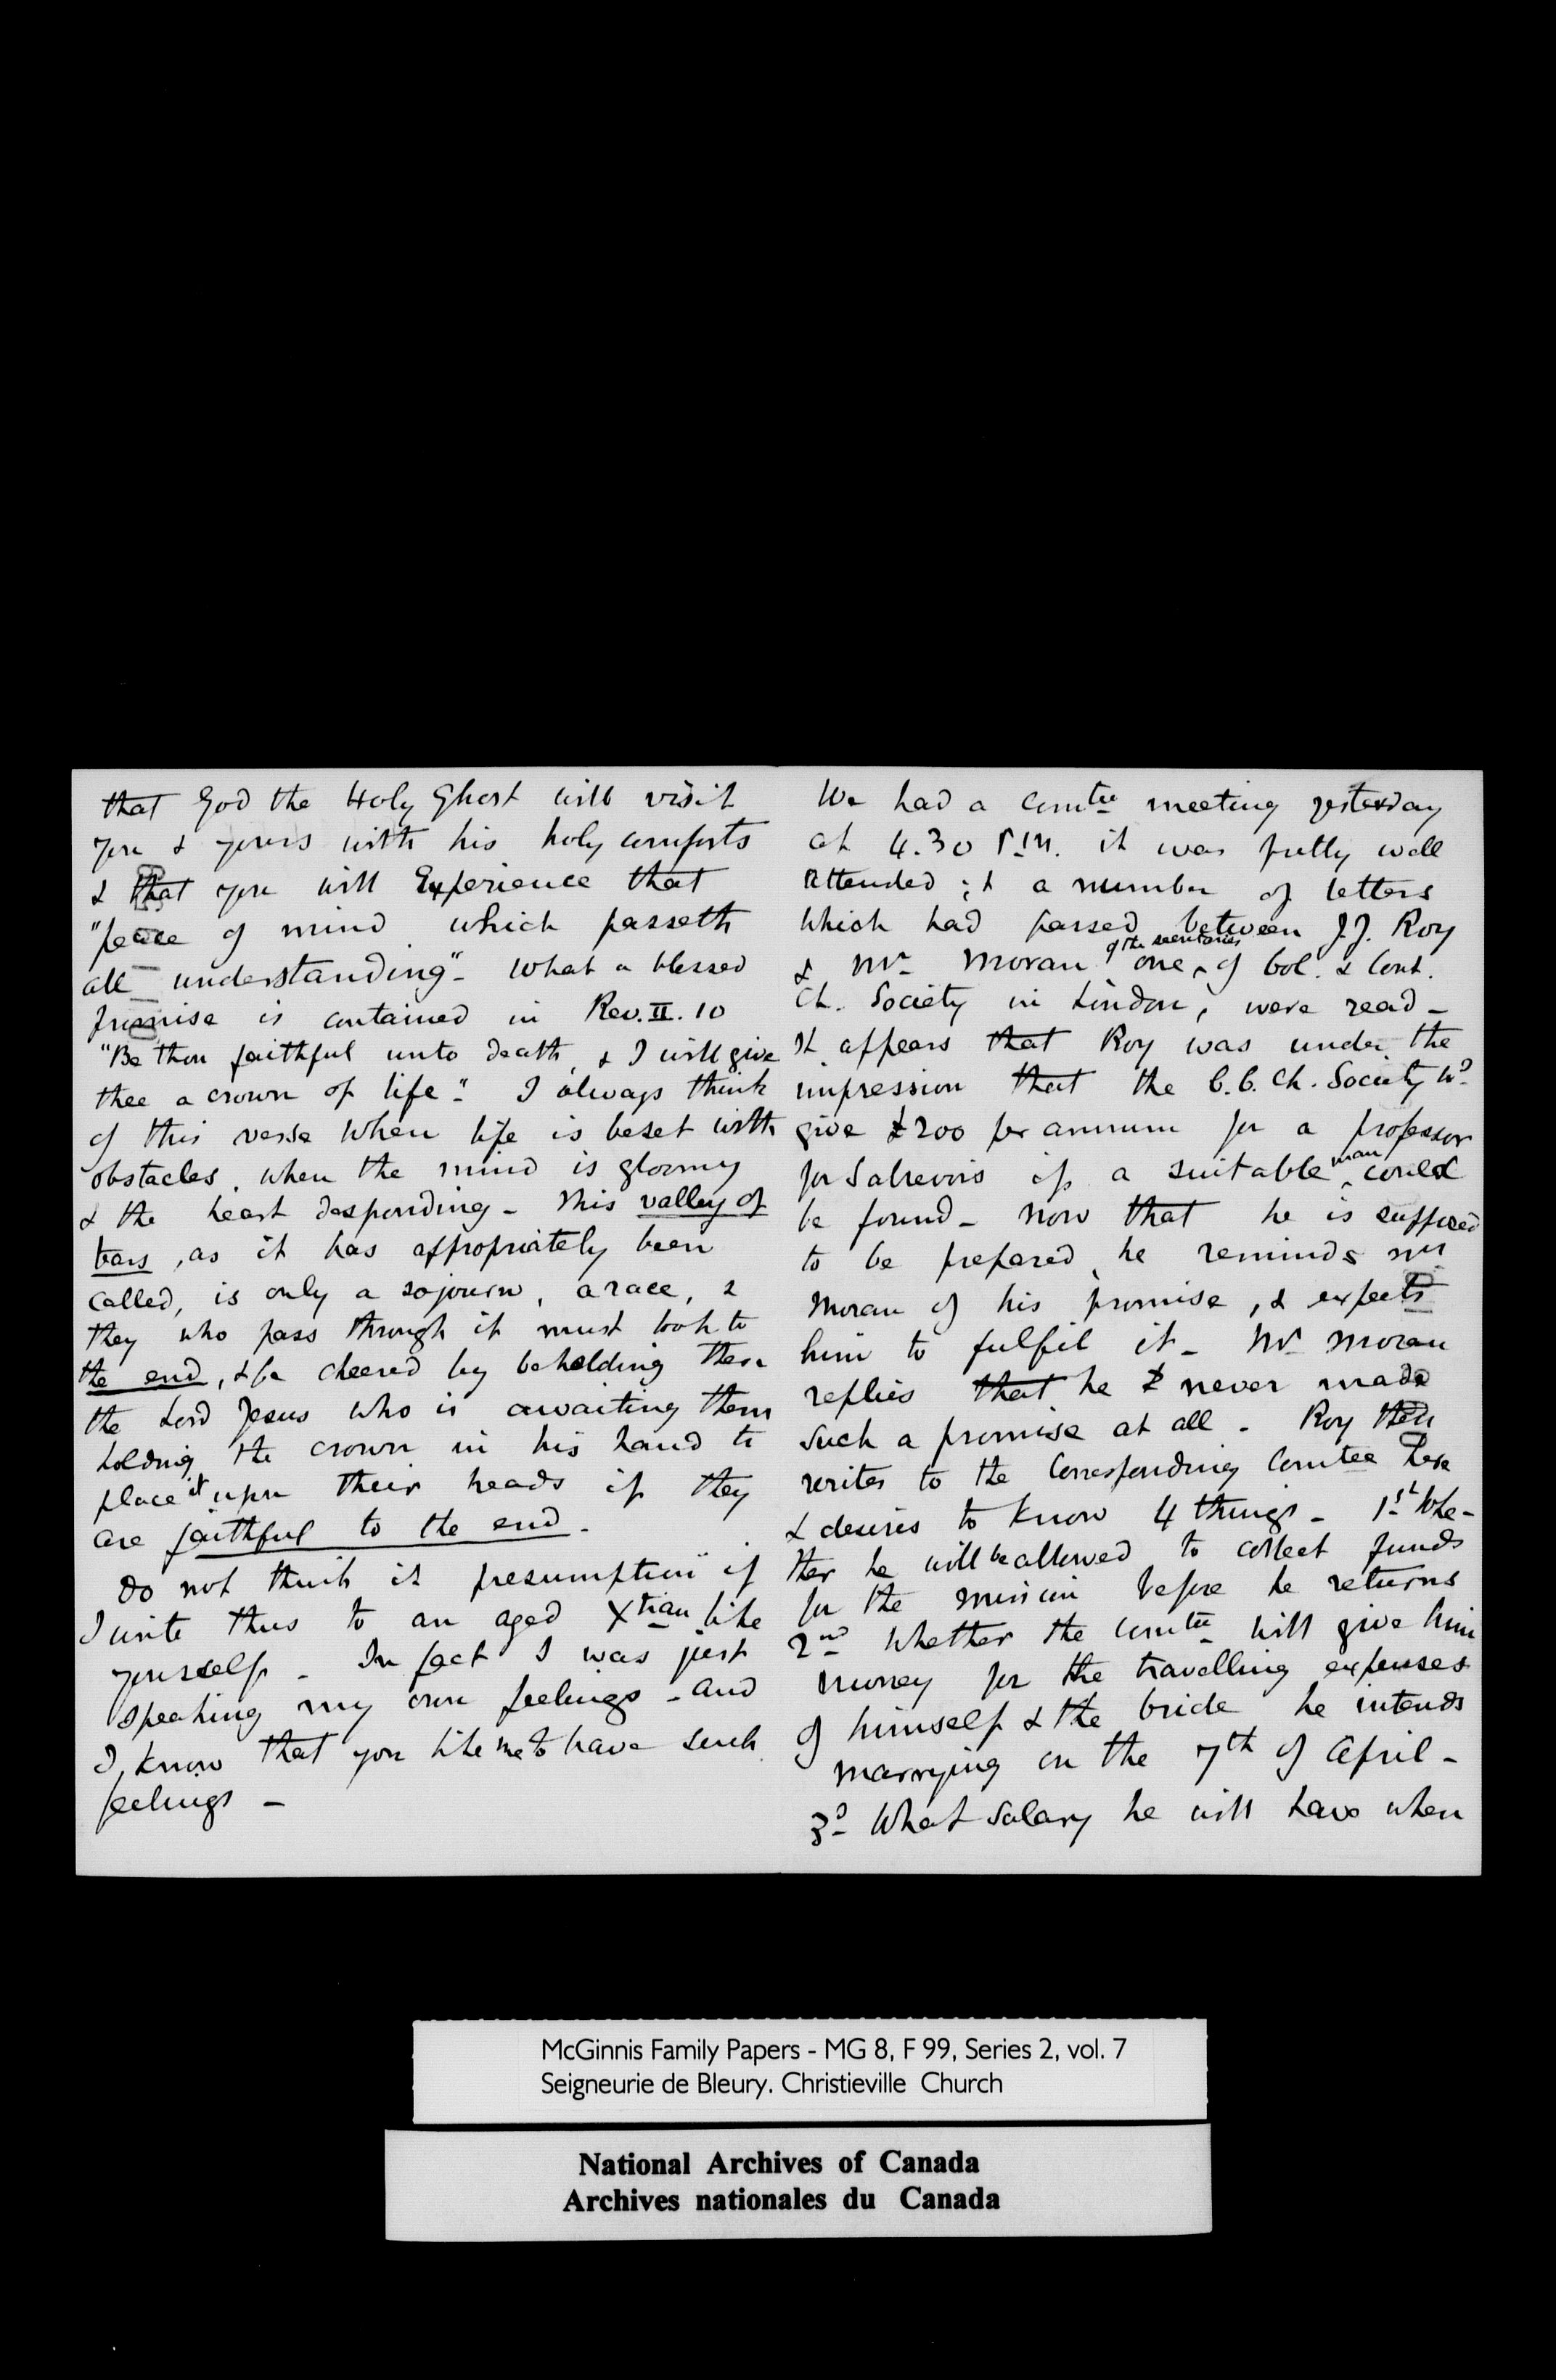 that God the Holy Ghost will visit
you & yours with his holy comforts
& that you will Experience that
"peace of mind which passeth
all understanding". What a blessed
promise is contained in Rev. II. 10
"Be thou faithful unto death, & I will give
thee a crown of life". I always think
of this verse when life is beset with
obstacles, when the mind is gloomy
& the heart desponding - This valley of
tears, as it has appropriately been
called, is only a sojourn, a race, &
they who pass through it must look to
the end, & be cheered by beholding there
the Lord Jesus who is awaiting them
holding the crown in his hand to
place it upon their heads if they
are faithful to the end.
Do not think it presumption if
I write thus to an aged Xtian like
yourself - In fact I was just
speaking my own feelings - and
I know that you like me to have such
feelings -
We had a comtee meeting yesterday
at 4.30 P.M. it was pretty well
attended; & a number of letters
which had passed between J.J. Roy
& Mr Moran one of the secretaries of Col. & Cont.
Ch. Society in London, were read -
It appears that Roy was under the
impression that the C.C. Ch. Society wd
give £200 per annum for a professor
for Sabrevois if a suitable man could
be found - Now that he is supposed
to be prepared, he reminds Mr
Moran of his promise, & expects
him to fulfil it - Mr Moran
replies that he never made
such a promise at all - Roy then
writes to the Corresponding Comtee here
& desires to know 4 things - 1st Whe-
ther he will be allowed to collect funds
for the mission before he returns
2nd Whether the comtee will give him
money for the travelling expenses
of himself & the bride he intends
marrying on the 7th of April -
3d What salary he will have when
McGinnis Family Papers - MG 8, F 99, Series 2, vol. 7
Seigneurie de Bleury. Christieville Church
National Archives of Canada
Archives nationales du Canada